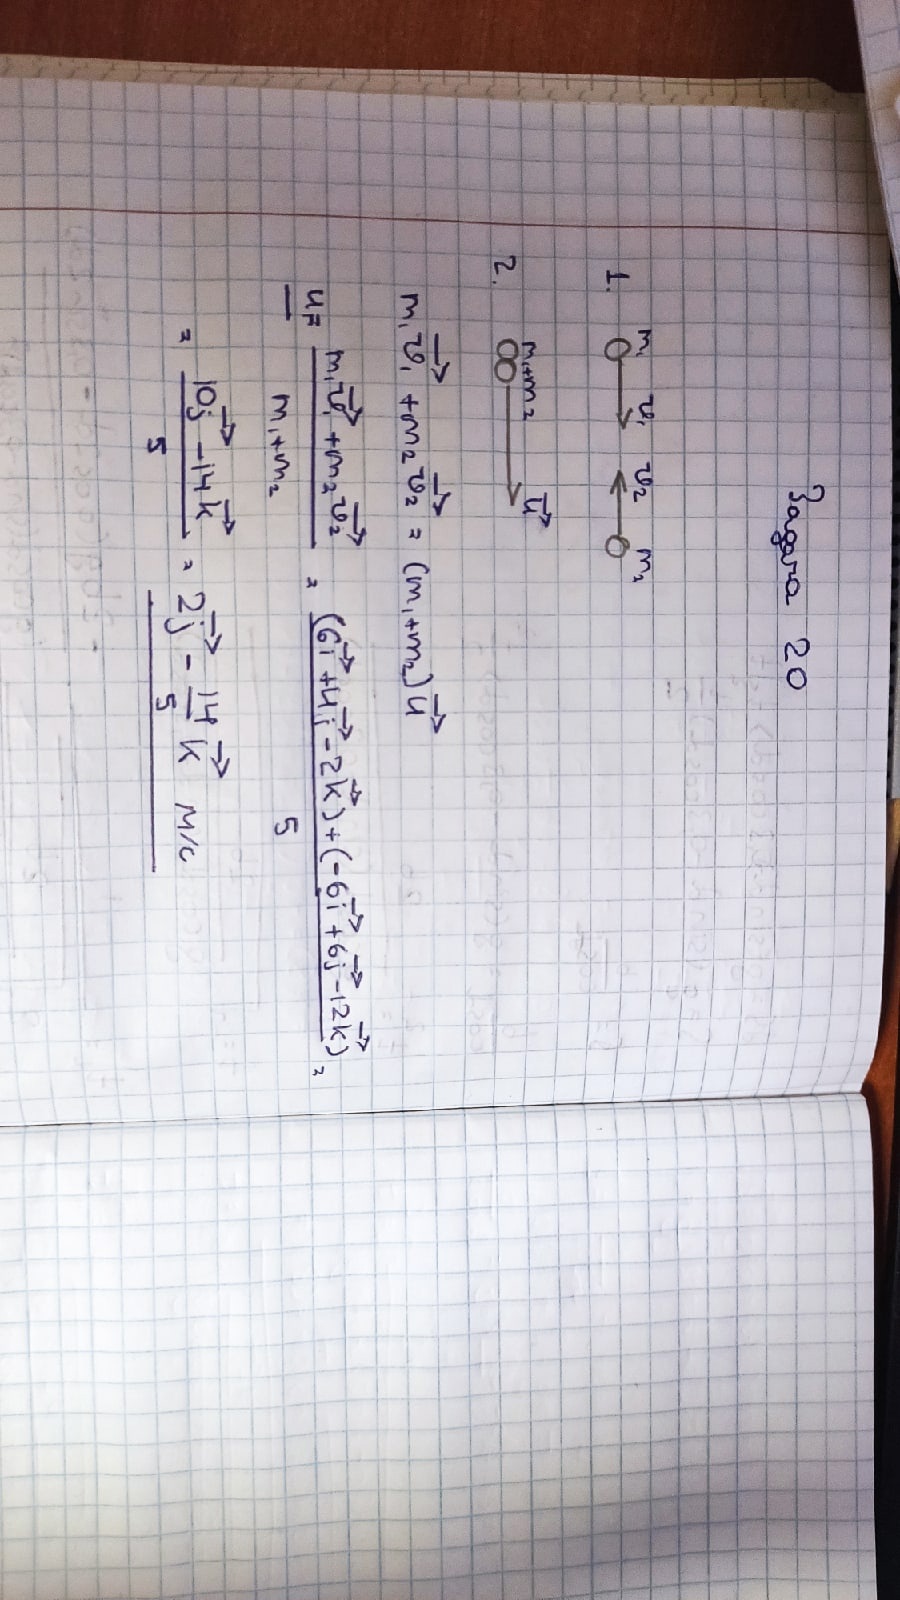 Задача 20
1. m₁ v₁ v₂ m₂
2. m₁+m₂ u⃗
m₁v⃗₁ + m₂v⃗₂ = (m₁+m₂)u⃗
u = (m₁v⃗₁ + m₂v⃗₂)/(m₁+m₂) = ((6i⃗ + 4j⃗ - 2k⃗) + (-6i⃗ + 6j⃗ - 12k⃗))/5 =
= (10j⃗ - 14k⃗)/5 = 2j⃗ - 14/5 k⃗ м/с